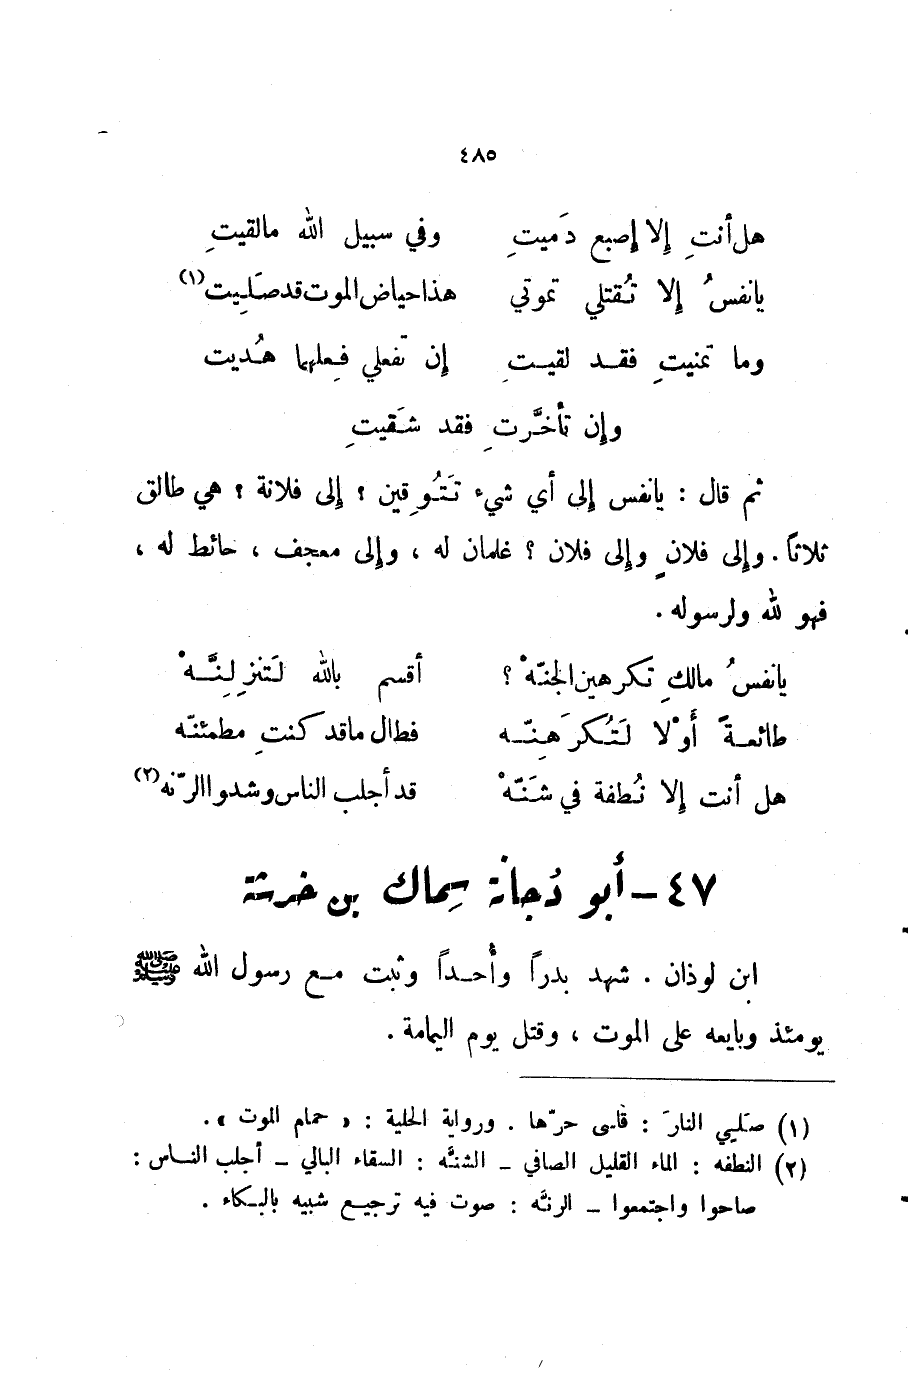 ٤٨٥
هل أنتِ إلا إصبع دَميتِ وفي سبيل الله مالقيتِ
يانفسُ إلا تُقتلي تموتي هذا حياض الموت قد صَلِيت (١)
وما تمنيتِ فقد لقيتِ إن تفعلي فعلهُما هُديت
وإن تأخَّرتِ فقد شَقيتِ
ثم قال : يانفس إلى أي شيء تَتُوقين ؟ إلى فلانة ؟ هي طالق
ثلاثاً . وإلى فلانٍ وإلى فلان ؟ غلمان له ، وإلى معجف ، حائط له ،
فهو لله ولرسوله .
يانفسُ مالكِ تكرهين الجنّهْ ؟ أقسم بالله لَتنزِلِنَّهْ
طائعةً أوْلا لَتُكرَهِنّه فطال ماقد كنتِ مطمئنّه
هل أنت إلا نُطفة في شَنّهْ قد أجلب الناس وشدوا الرّنه (٢)
٤٧ – أبو دُجانة سِماك بن خرشة
ابن لوذان . شهد بدراً وأُحداً وثبت مع رسول الله ﷺ
يومئذ وبايعه على الموت ، وقتل يوم اليمامة .
(١) صَلِيَ النارَ : قاسى حرّها . ورواية الحلية : « حمام الموت » .
(٢) النطفه : الماء القليل الصافي – الشنَّه : السقاء البالي – أجلب الناس :
صاحوا واجتمعوا – الرنَّه : صوت فيه ترجيع شبيه بالبكاء .